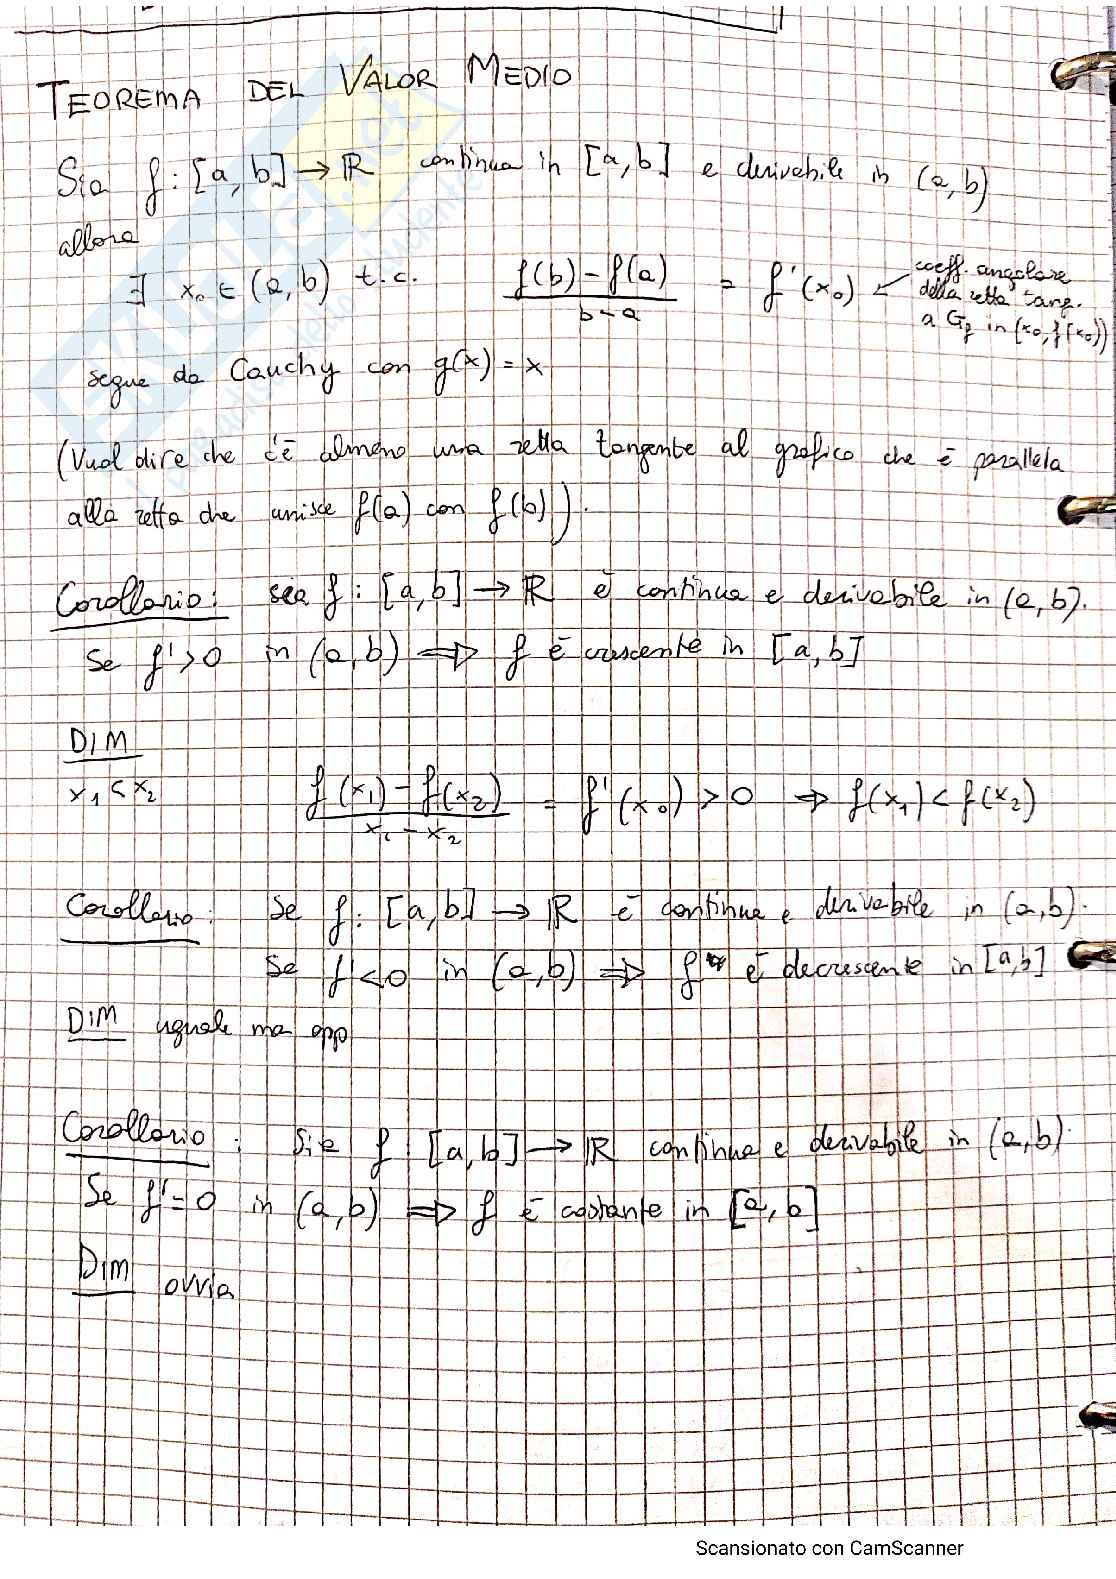 TEOREMA DEL VALOR MEDIO
Sia f : [a,b] → ℝ continua in [a,b] e derivabile in (a,b)
allora
∃ x₀ ∈ (a,b) t.c. f(b) - f(a) / b - a = f'(x₀) ← coeff. angolare
della retta tang.
a G_f in (x₀, f(x₀))
segue da Cauchy con g(x) = x
(Vuol dire che c'è almeno una retta tangente al grafico che è parallela
alla retta che unisce f(a) con f(b)).
Corollario: sia f : [a,b] → ℝ è continua e derivabile in (a,b).
Se f' > 0 in (a,b) ⇒ f è crescente in [a,b]
DIM
x₁ < x₂ f(x₁) - f(x₂) / x₁ - x₂ = f'(x₀) > 0 ⇒ f(x₁) < f(x₂)
Corollario: Se f : [a,b] → ℝ è continua e derivabile in (a,b).
Se f' < 0 in (a,b) ⇒ f è decrescente in [a,b]
DIM uguale ma opp
Corollario: Sia f : [a,b] → ℝ continua e derivabile in (a,b).
Se f' = 0 in (a,b) ⇒ f è costante in [a,b]
DIM ovvia
Scansionato con CamScanner